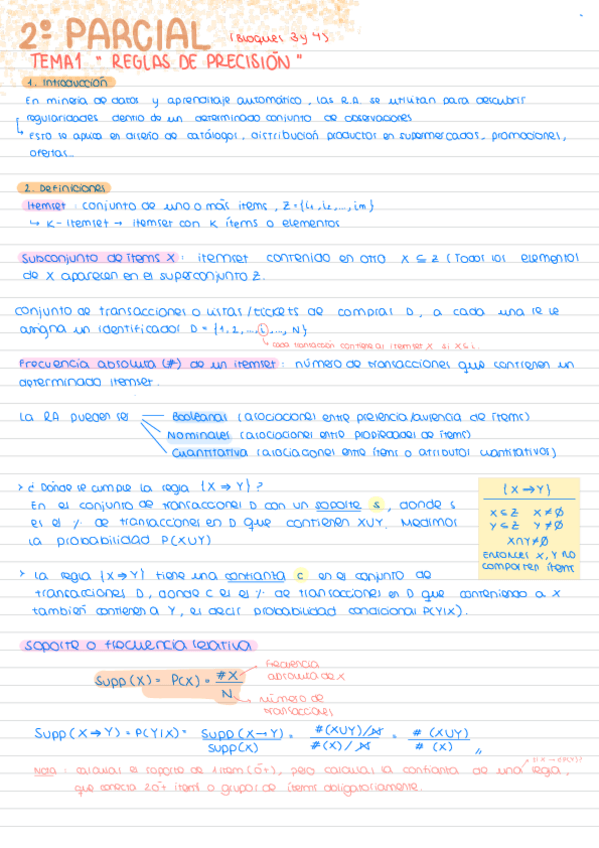 2º PARCIAL (Bloques 3 y 4)
TEMA1 " REGLAS DE PRECISIÓN "
1. Introducción
En minería de datos y aprendizaje automático, las R.A. se utilizan para descubrir
regularidades dentro de un determinado conjunto de observaciones
↳ Esto se aplica en diseño de catálogos, distribución productos en supermercados, promociones,
ofertas...
2. Definiciones
Itemset : conjunto de uno o más items , Z = {i₁, i₂, ..., im}
↳ K- Itemset → itemset con K ítems o elementos
Subconjunto de ítems X : itemset contenido en otro X ⊆ Z (Todos los elementos
de X aparecen en el superconjunto Z.
Conjunto de transacciones o listas/tickets de compras D , a cada una se le
asigna un identificador D = {1, 2, ..., i, ..., N}
↳ cada transacción contiene al itemset X si X ⊆ i.
Frecuencia absoluta (#) de un itemset : número de transacciones que contienen un
determinado itemset.
La RA pueden ser — Booleanas (asociaciones entre presencia/ausencia de ítems)
Nominales (asociaciones entre propiedades de ítems)
Cuantitativa (asociaciones entre ítems o atributos cuantitativos)
> ¿ Dónde se cumple la regla {X ⇒ Y} ?
En el conjunto de transacciones D con un soporte s , donde s
es el % de transacciones en D que contienen XUY. Medimos
la probabilidad P(XUY)
{X → Y}
X ⊆ Z X ≠ Ø
Y ⊆ Z Y ≠ Ø
X∩Y ≠ Ø
ENTONCES X, Y NO
comparten ítems
> La regla {X ⇒ Y} tiene una confianza c en el conjunto de
transacciones D, donde c es el % de transacciones en D que conteniendo a X
también contienen a Y, es decir probabilidad condicional P(Y|X).
Soporte o frecuencia relativa
Supp (X) = P(X) = #X / N
Frecuencia
absoluta de X
número de
transacciones
Supp (X → Y) = P(Y|X) = Supp (X → Y) / Supp(X) = #(XUY)/N / #(X)/N = # (XUY) / # (X)
Nota : calcular el soporte de 1 item (ó +), pero calcular la confianza de una regla,
que conecta 2 ó + ítems o grupos de ítems obligatoriamente.